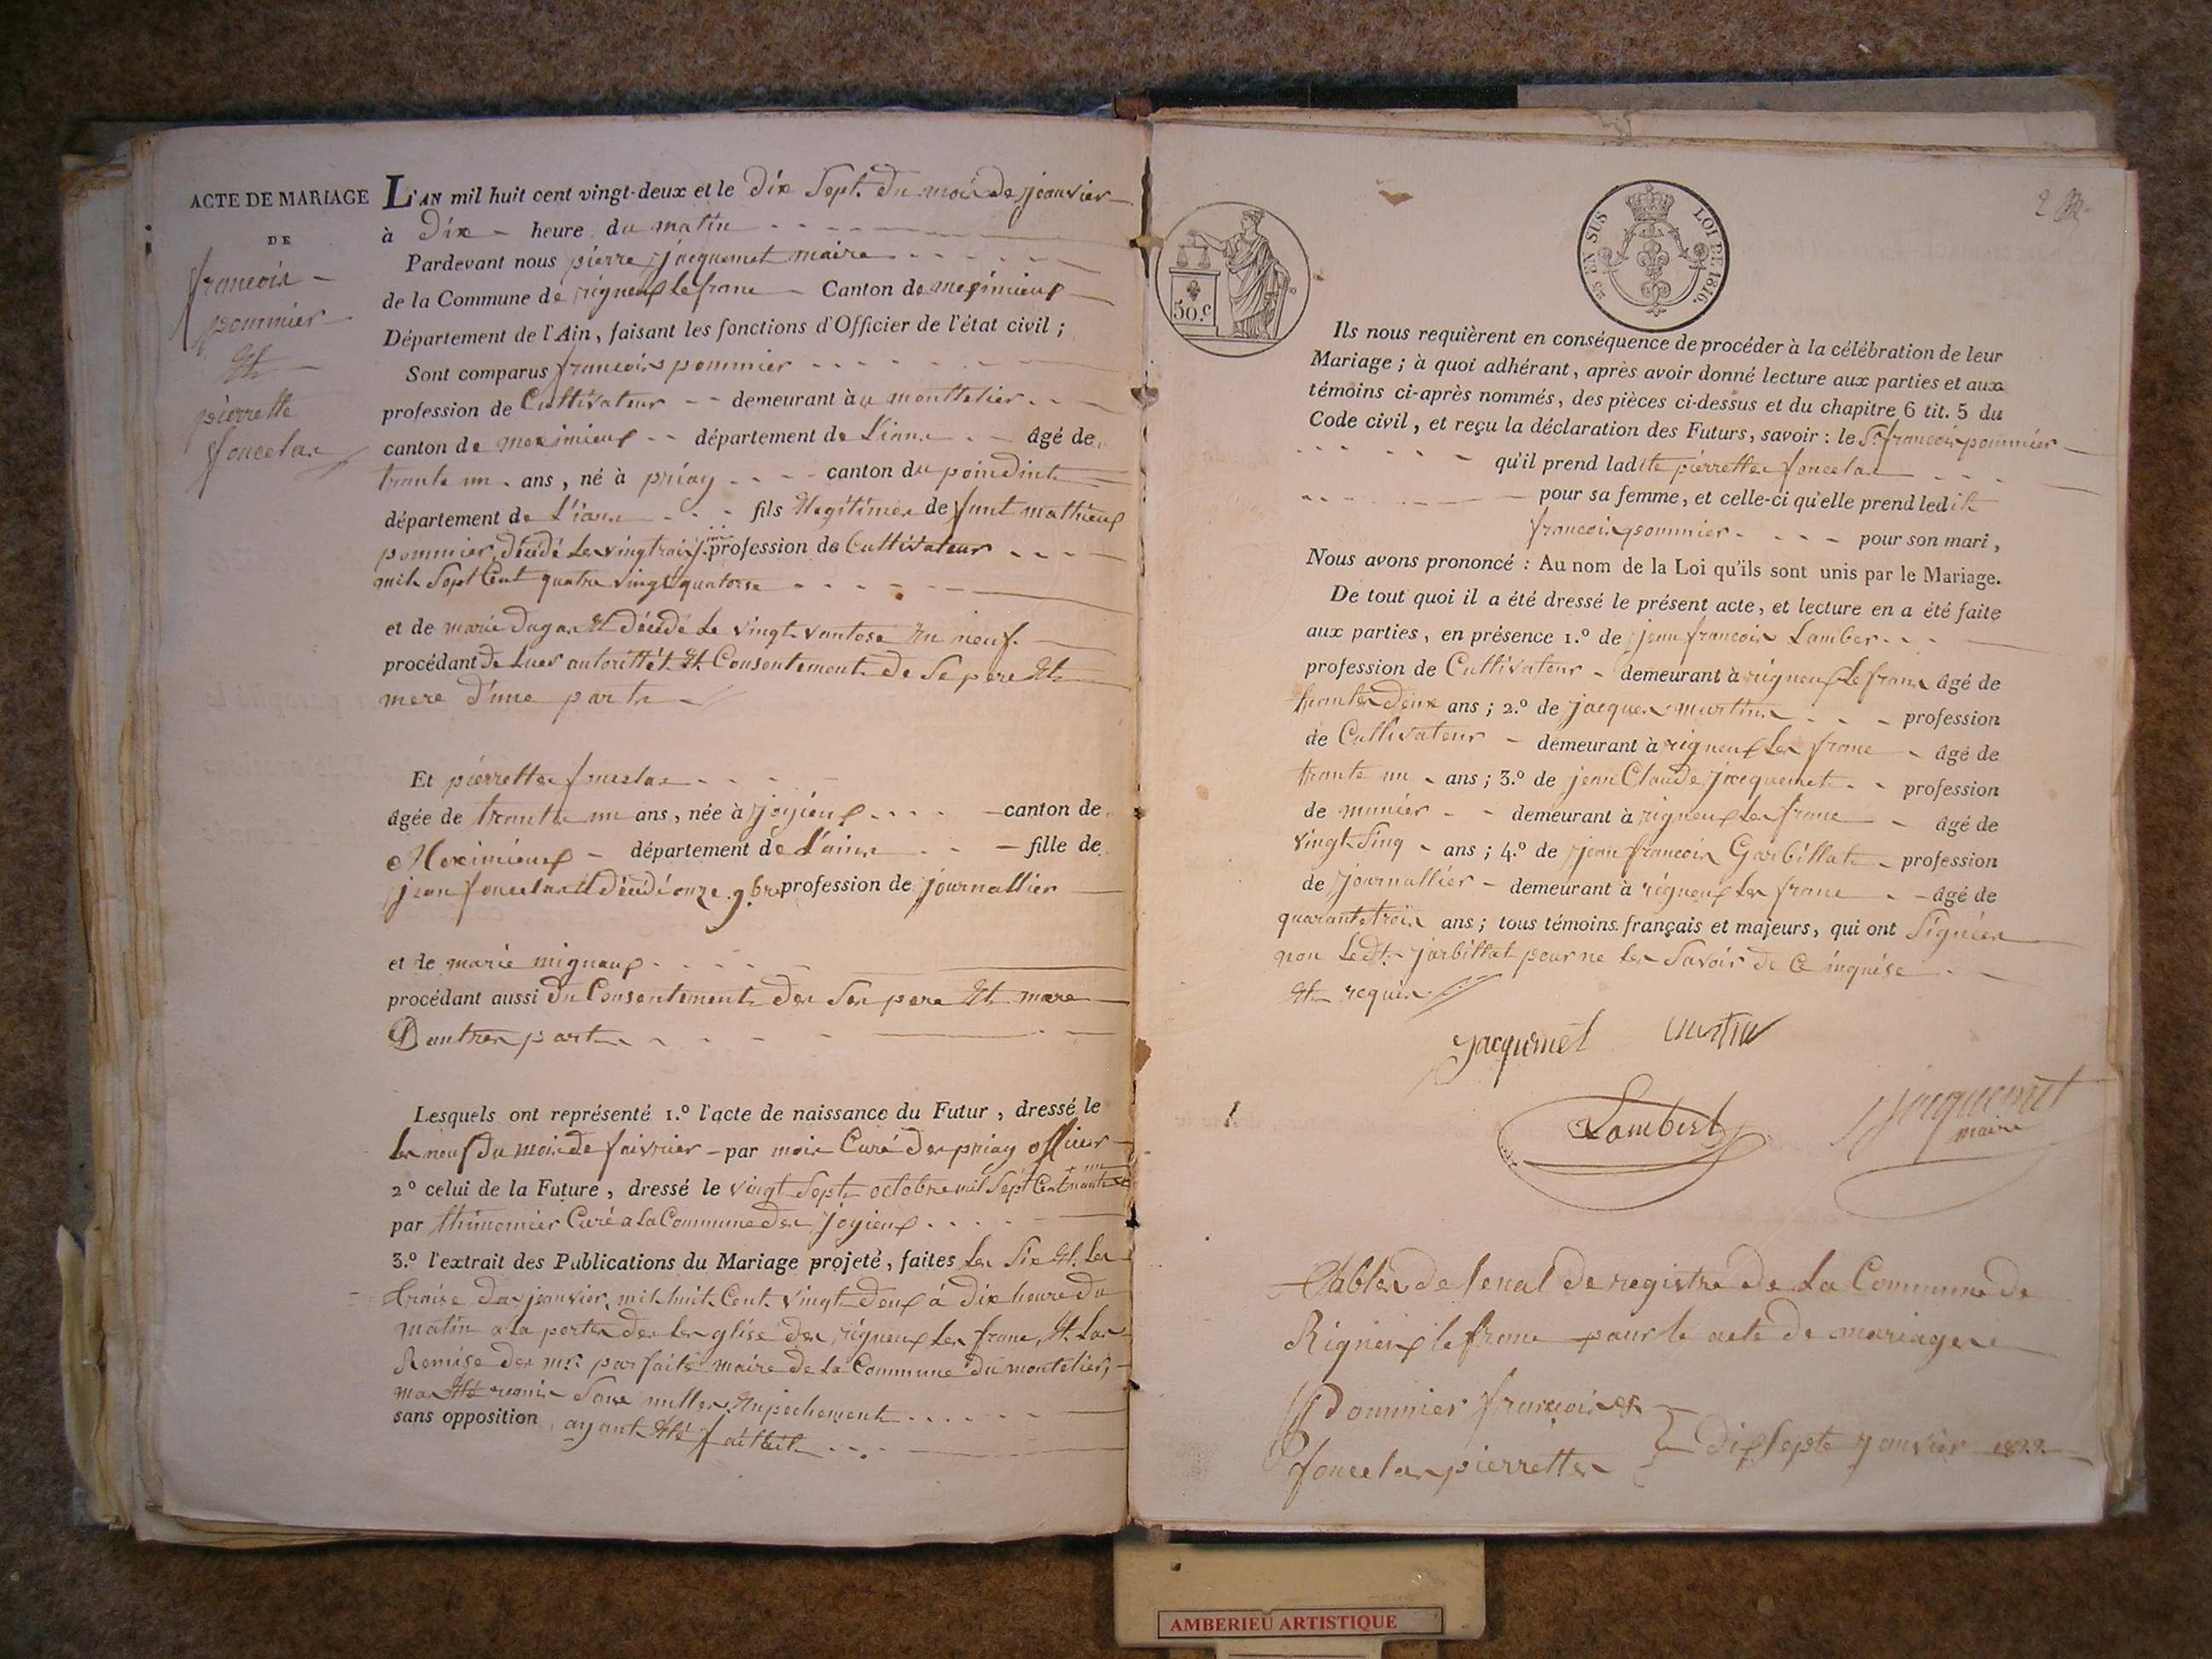 ACTE DE MARIAGE
DE
francois
pommier
Et
pierrette
foncelas
L'AN mil huit cent vingt-deux et le dix Sept. du mois de jeanvier
à dix heure du matin
Pardevant nous pierre jacquemet maire
de la Commune de rigneux le franc Canton de meximieux
Département de l'Ain, faisant les fonctions d'Officier de l'état civil ;
Sont comparus francois pommier
profession de Cultivateur demeurant au monttelier
canton de meximieux département de L'iann âgé de
trante un ans, né à priay canton du poindint
département de L'iann fils legitimes de funt mathieux
pommier, décédé le vingtrois profession de Cultivateur
mil Sept Cent quatre vingt quatorse
et de marie dugas Et décédé le vingt vantose an neuf.
procédant de Lues autorittét Et Consentement de Se pere Et
mere d'une part
Et pierrette founelas
âgée de trante un ans, née à joyieux canton de
Meximieux département de L'ainn fille de
jean foncelas Et décédé onze 9.bre profession de journallier
et de marie mignaux
procédant aussi du Consentement de Ses pere Et mere
D'autres part
Lesquels ont représenté 1.º l'acte de naissance du Futur, dressé le
le neuf du mois de faivrier par moi Curé de priay officier
2º celui de la Future, dressé le vingt Sept octobre mil Sept Cent nante
par thimonier Curé a La Commune de joyieux
3.º l'extrait des Publications du Mariage projeté, faites Le Six Et Le
traize de jeanvier mil huit Cent vingt deux à dix heure du
matin a La porte de Leglise de rigneux Le franc, Et La
Remise de mr. parfaite maire de La Commune du montelier,
ma Eté remis Sans nulles Enpechement
sans opposition ayant Eté fait
50.c
25 EN SUS LOI DE 1816.
2
Ils nous requièrent en conséquence de procéder à la célébration de leur
Mariage ; à quoi adhérant, après avoir donné lecture aux parties et aux
témoins ci-après nommés, des pièces ci-dessus et du chapitre 6 tit. 5 du
Code civil, et reçu la déclaration des Futurs, savoir : le Sr. francois pommier
qu'il prend ladite pierrette foncelas
pour sa femme, et celle-ci qu'elle prend ledit
francois pommier pour son mari,
Nous avons prononcé : Au nom de la Loi qu'ils sont unis par le Mariage.
De tout quoi il a été dressé le présent acte, et lecture en a été faite
aux parties, en présence 1.º de jean francois Lamber
profession de Cultivateur demeurant à rigneux Le franc âgé de
trante deux ans ; 2.º de jacques martin profession
de Cultivateur demeurant à rigneux Le franc âgé de
trante un ans ; 3.º de jean Claude jacquemet profession
de munier demeurant à rigneux Le franc âgé de
vingt Sinq ans ; 4.º de jean francois Garbillat profession
de journallier demeurant à rigneux Le franc âgé de
quarante trois ans ; tous témoins français et majeurs, qui ont Signée
non Ledt. jarbillat pour ne Le Savoir de Ce inquise
Et requis
jacqumet martin
Lambert jacquemet
maire
Table de lenal de registre de La Commune de
Rigneux le franc pour le acte de mariage
Pommier francois &
foncelas pierrette } dix septe janvier 1822
AMBERIEU ARTISTIQUE